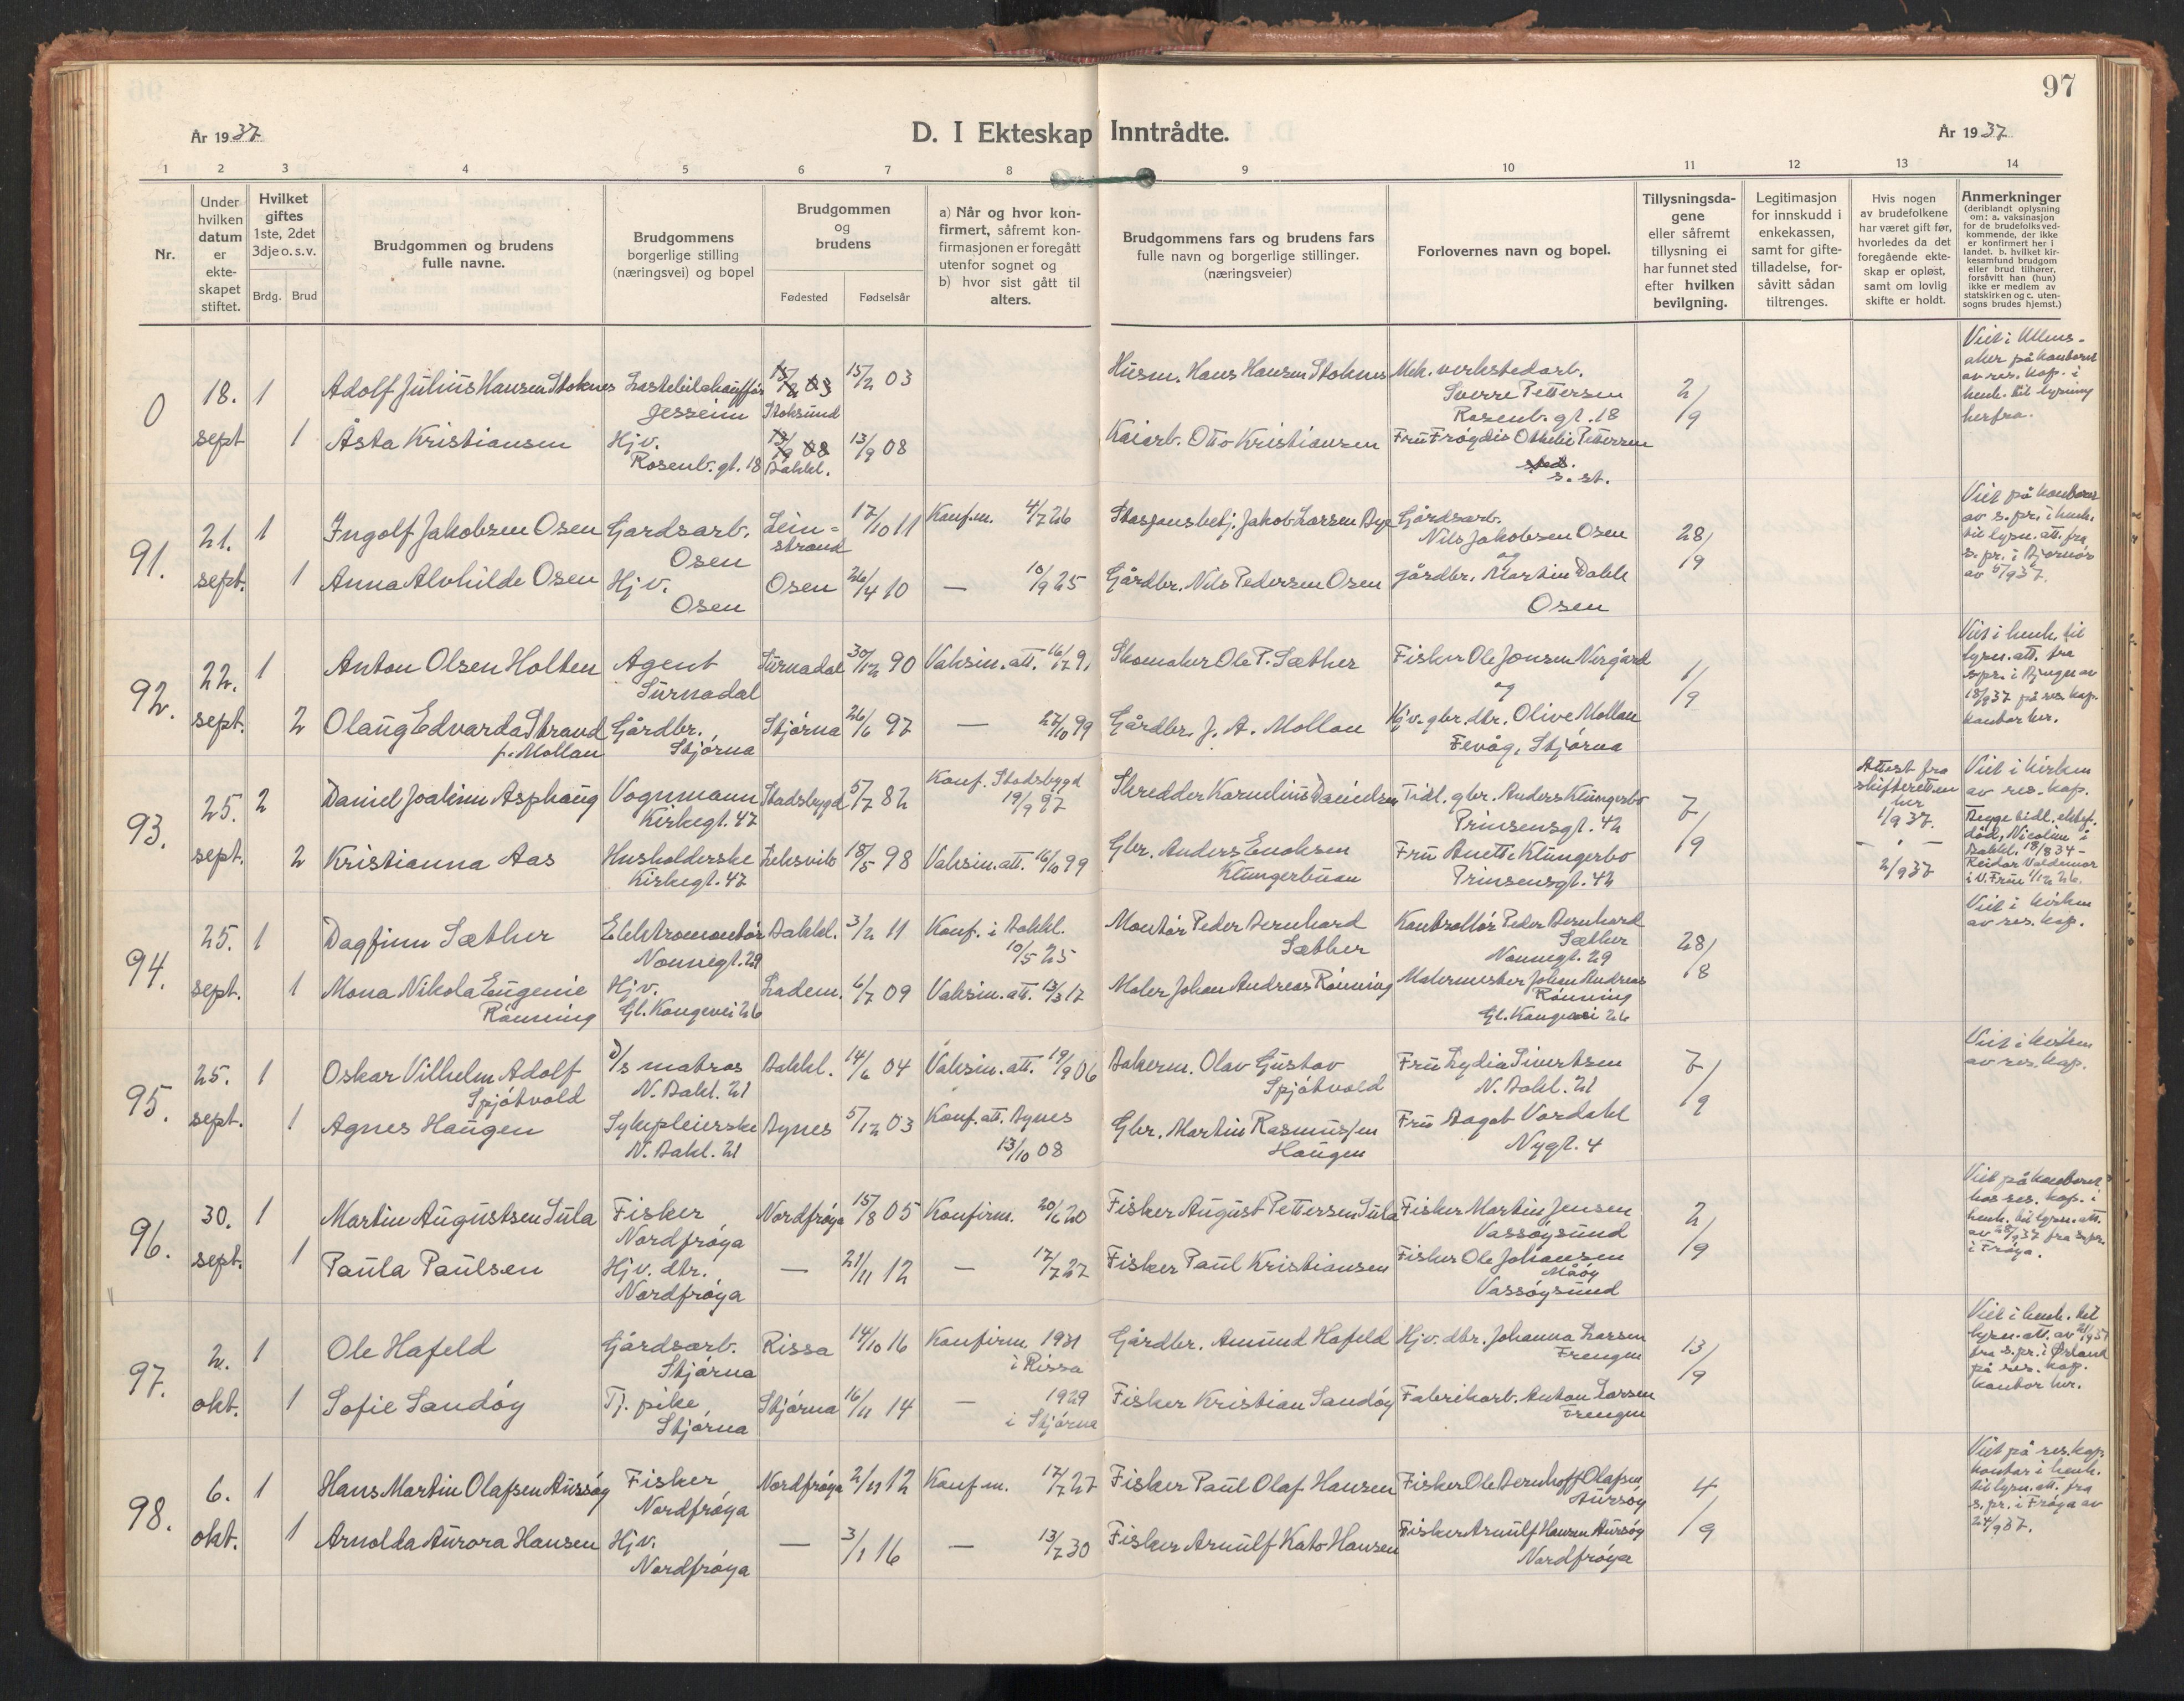 97
År 1937
D. I Ekteskap Inntrådte.
År 1937
1 2 3 4 5 6 7 8 9 10 11 12 13 14
Nr.
Under hvilken datum er ekte- skapet stiftet.
Hvilket giftes 1ste, 2det 3dje o. s. v.
Brdg. Brud
Brudgommen og brudens fulle navne.
Brudgommens borgerlige stilling (næringsvei) og bopel
Brudgommen og brudens
Fødested Fødselsår
a) Når og hvor kon- firmert, såfremt kon- firmasjonen er foregått utenfor sognet og b) hvor sist gått til alters.
Brudgommens fars og brudens fars fulle navn og borgerlige stillinger. (næringsveier)
Forlovernes navn og bopel.
Tillysningsda- gene eller såfremt tillysning ei har funnet sted efter hvilken bevilgning.
Legitimasjon for innskudd i enkekassen, samt for gifte- tilladelse, for- såvitt sådan tiltrenges.
Hvis nogen av brudefolkene har været gift før, hvorledes da det foregående ekte- skap er opløst, samt om lovlig skifte er holdt.
Anmerkninger (deriblandt oplysning om: a. vaksinasjon for de brudefolksved- kommende, der ikke er konfirmert her i landet. b. hvilket kir- kesamfund brudgom eller brud tilhører, forsåvitt han (hun) ikke er medlem av statskirken og c. uten- sogns brudes hjemst.)
0 18. sept 1 Adolf Julius Hansen Stoknes Lastebilchauffør Jessheim 15/2 03 Stoksund 15/2 03 Husm. Hans Hansen Stoknes Mek. verkstedarb. Sverre Pettersen Rosenb. gt. 18 2/9 Viet i Ullens- aker på kontoret av res. kap. i henh. til lysning herfra.
1 Åsta Kristiansen Hjv. Rosenb. gt. 18 13/9 08 Bakkl. 13/9 08 Kaiarb. Otto Kristiansen Fru Frøydis Othelie Pettersen sted. s. st.
91. 21. sept. 1 Ingolf Jakobsen Osen Gardsarb. Osen Lein- strand 17/10 11 Konf.m. 4/7 26 Stasjonsbetj. Jakob Larsen Bye Gårdsarb. Nils Jakobsen Osen og 28/9 Viet på kontoret av s. pr. i henh. til lysn. att. fra s. pr. i Bjørnør av 5/9 37.
1 Anna Alvhilde Osen Hjv. Osen Osen 26/4 10 — 10/9 25 Gårdbr. Nils Pedersen Osen gårdbr. Martin Dahle Osen
92. 22. sept. 1 Anton Olsen Holten Agent Surnadal Surnadal 30/12 90 Vaksin. att. 16/12 91 Skomaker Ole P. Sæther Fisker Ole Jonsen Nergård og 1/9 Viet i henh. til lysn. att. fra s.pr. i Bjugn av 18/9 37 på res. kap. kontor her.
2 Olaug Edvarda Strand f. Mollan Gårdbr. Stjørna Stjørna 26/6 97 — 27/10 99 Gårdbr. J. A. Mollan Hjv. gbr. dtr. Olive Mollan Fevåg, Stjørna
93. 25. sept. 2 Daniel Joakim Asphaug Vognmann Kirkegt. 47 Stadsbygd 5/7 82 Konf. Stadsbygd 19/9 97 Skredder Kornelius Danielsen Tidl. gbr. Anders Klungerbo Prinsensgt. 42 7/9 Attest fra skifteretten her 1/9 37. Viet i kirken av res. kap.
2 Kristianna Aas Husholderske Kirkegt. 47 Leksvik 18/5 98 Vaksin. att. 16/10 99 Gbr. Anders Enoksen Klungerbuan Fru Anette Klungerbo Prinsensgt. 42 — " — 2/9 37 Begge tidl. ektef. død, Nicoline i Bakkl. 18/8 34 – Reidar Valdemar i V. Frue 1/12 26.
94. 25. sept. 1 Dagfinn Sæther Elektromontør Nonnegt. 29 Bakkl. 3/2 11 Konf. i Bakkl. 10/5 25 Montør Peder Bernhard Sæther Kontrollør Peder Bernhard Sæther Nonnegt. 29 28/8 Viet i kirken av res. kap.
1 Mona Nikola Eugenie Rønning Hjv. Gl. Kongevei 26 Ladem. 6/7 09 Vaksin. att. 13/3 17 Maler Johan Andreas Rønning Malermester Johan Andreas Rønning Gl. Kongevei 26
95. 25. sept. 1 Oskar Vilhelm Adolf Spjøtvold D/s matros N. Bakl. 21 Bakkl. 14/6 04 Vaksin. att. 19/9 06 Bakerm. Olav Gustav Spjøtvold Fru Lydia Sivertsen N. Bakl. 21 7/9 Viet i kirken av res. kap.
1 Agnes Haugen Sykepleierske N. Bakl. 21 Bynes 5/12 03 Konf. att. Bynes 13/10 08 Gbr. Martin Rasmussen Haugen Fru Dagot Vordahl Nygt. 4
96. 30. sept. 1 Martin Augustsen Sula Fisker Nordfrøya Nordfrøya 15/8 05 Konfirm. 20/6 20 Fisker August Pettersen Sula Fisker Martin Jensen Vassøysund 2/9 Viet på kontoret hos res. kap. i henh. til lysn. att. av 28/9 37 fra s.pr. i Frøya.
1 Paula Paulsen Hjv. dtr. Nordfrøya — 21/11 12 — 17/7 27 Fisker Paul Kristiansen Fisker Ole Johansen Måøy Vassøysund
97. 2. okt. 1 Ole Hafeld Gårdsarb. Stjørna Rissa 14/10 16 Konfirm. 1931 i Rissa Gårdbr. Amund Hafeld Hjv. dtr. Johanna Larsen Frengen 13/9 Viet i henh. til lysn. att. av 21/9 37 fra s. pr. i Ørland på res. kap. kontor her.
1 Sofie Sandøy Tj. pike Stjørna Stjørna 16/11 14 — 1929 i Stjørna Fisker Kristian Sandøy Fabrikarb. Anton Larsen Frengen
98. 6. okt. 1 Hans Martin Olafsen Aursøy Fisker Nordfrøya Nordfrøya 2/11 12 Konf.m. 17/7 27 Fisker Paul Olaf Hansen Fisker Ole Bernhoff Olafsen Aursøy 4/9 Viet på res. kap. kontor i henh. til lysn. att. fra s. pr. i Frøya av 24/9 37.
1 Arnolda Aurora Hansen Hjv. Nordfrøya — 3/1 16 — 13/7 30 Fisker Arnulf Kato Hansen Fisker Arnulf Hansen Aursøy Nordfrøya